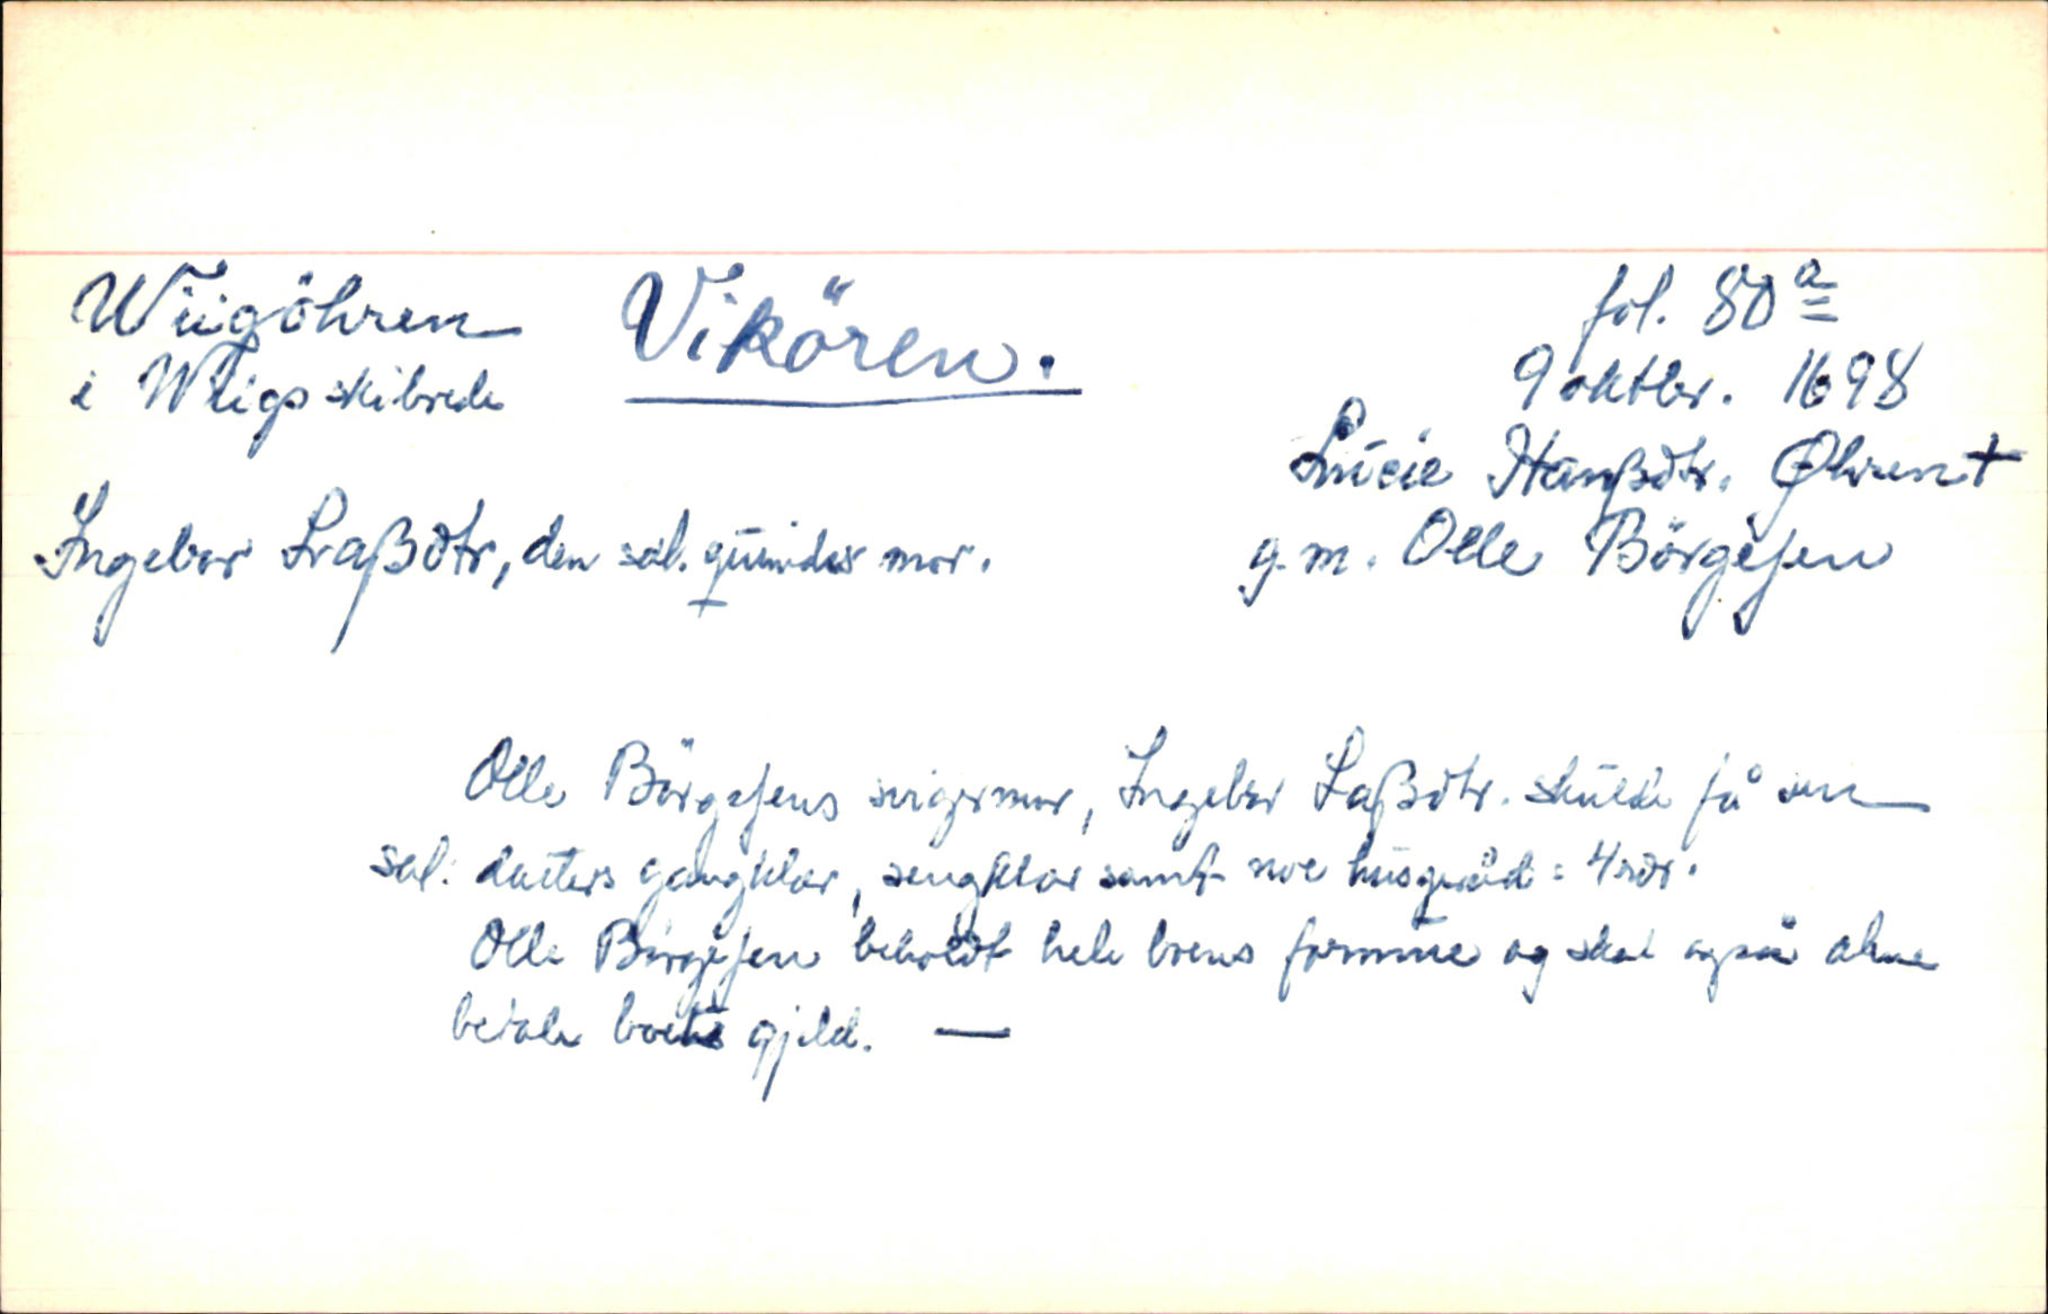 Wiigöhren
i Wiigs skibrede
Viköreu.
fol. 80 a
9 oktbr. 1698
Lucie Hanßdtr. Øhren +
g. m. Olle Börgesen
Ingebor Laßdtr, den sal. quindes mor.
Olle Börgesens svigermor, Ingebor Laßdtr. skulde få sin
sal: datters gangklær, sengklær samt noe husgeråd: 4 rdr.
Olle Börgesen beholdt hele boens formue og skal også alene
betale boets gjeld. —